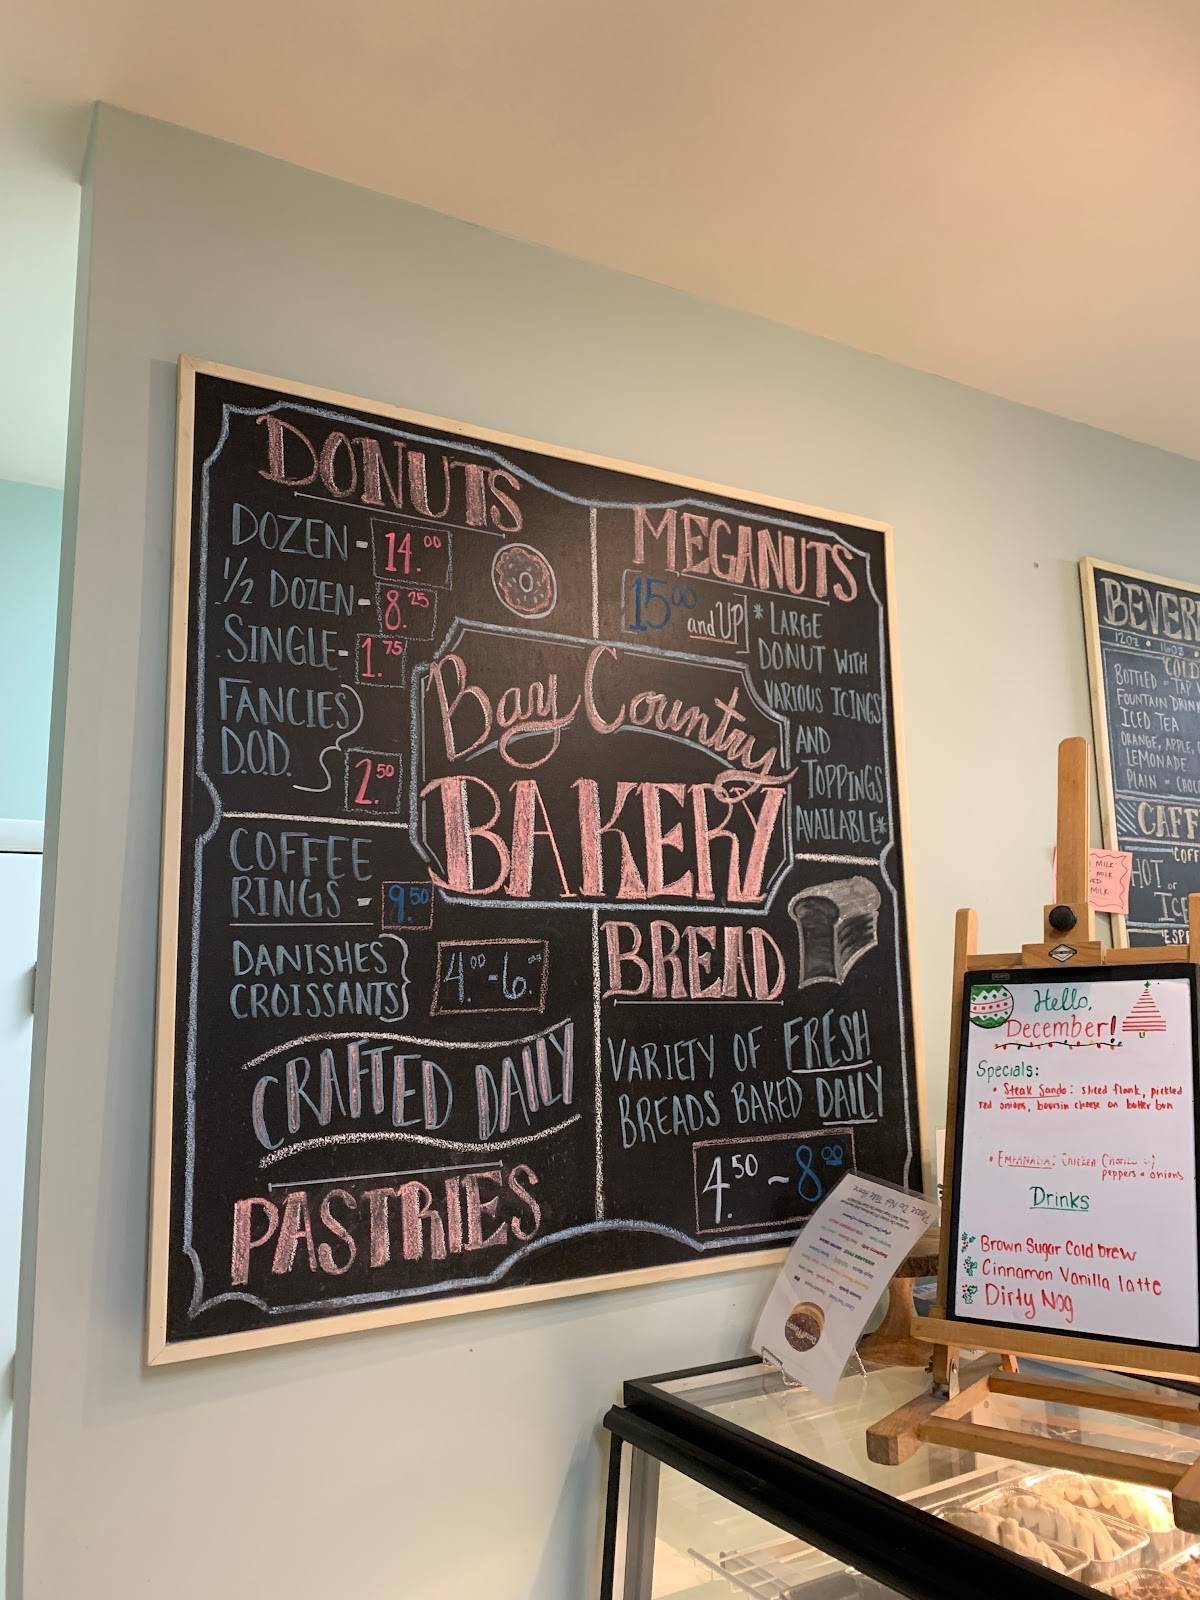 DONUTS
DOZEN - 14.00
1/2 DOZEN - 8.25
SINGLE - 1.75
FANCIES
D.O.D.
2.50
COFFEE
RINGS - 9.50
DANISHES
CROISSANTS
4.00 - 6.
CRAFTED DAILY
PASTRIES
Bay Country
BAKERY
MEGANUTS
15.00 and UP
*LARGE
DONUT WITH
VARIOUS ICINGS
AND
TOPPINGS
AVAILABLE*
BREAD
VARIETY OF FRESH
BREADS BAKED DAILY
4.50 - 8.00
BEVER
12OZ • 16OZ
COLD
BOTTLED - TAP
FOUNTAIN DRINK
ICED TEA
ORANGE, APPLE,
LEMONADE
PLAIN - CHOC
CAFF
COFF
HOT or
ICE
ESP
MILK
MILK
MILK
Hello,
December!
Specials:
• Steak Sando: sliced flank, pickled
red onions, boursin cheese on butter bun
• EMPANADA: CHICKEN
peppers & onions
Drinks
Brown Sugar Cold brew
Cinnamon Vanilla latte
Dirty Nog
Please Do Not Take Home